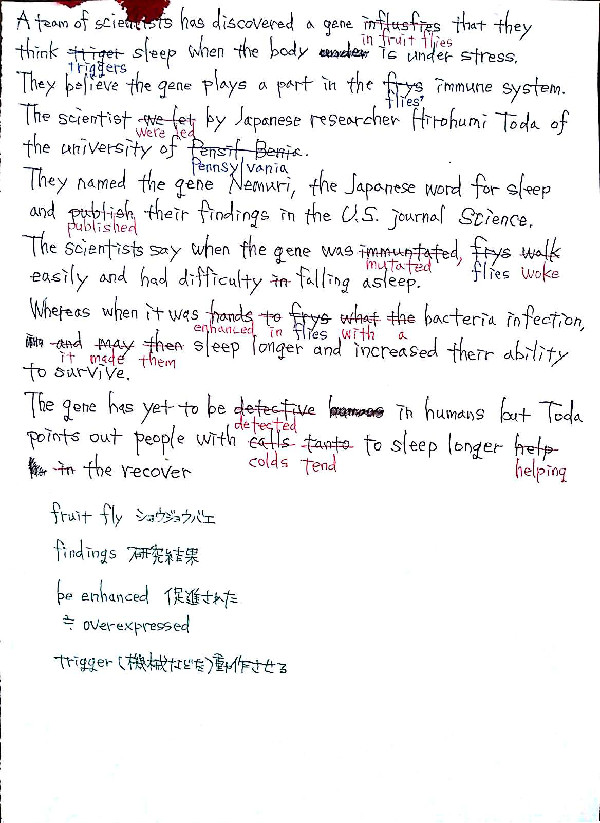 A team of scientists has discovered a gene influsfies that they
in fruit flies
think triger sleep when the body under is under stress.
triggers
They believe the gene plays a part in the frys immune system.
flies'
The scientist we let by Japanese researcher Hirohumi Toda of
were led
the university of Pensil Benic.
Pennsylvania
They named the gene Nemuri, the Japanese word for sleep
and publish their findings in the U.S. journal Science.
published
The scientists say when the gene was immuntated, frys walk
mutated flies woke
easily and had difficulty in falling asleep.
Whereas when it was hands to frys what the bacteria infection,
enhanced in flies with a
and may then sleep longer and increased their ability
it made them
to survive.
The gene has yet to be detective in humans but Toda
detected
points out people with calls tanto to sleep longer help
colds tend helping
in the recover
fruit fly ショウジョウバエ
findings 研究結果
be enhanced 促進された
≒ overexpressed
trigger (機械などを)動作させる